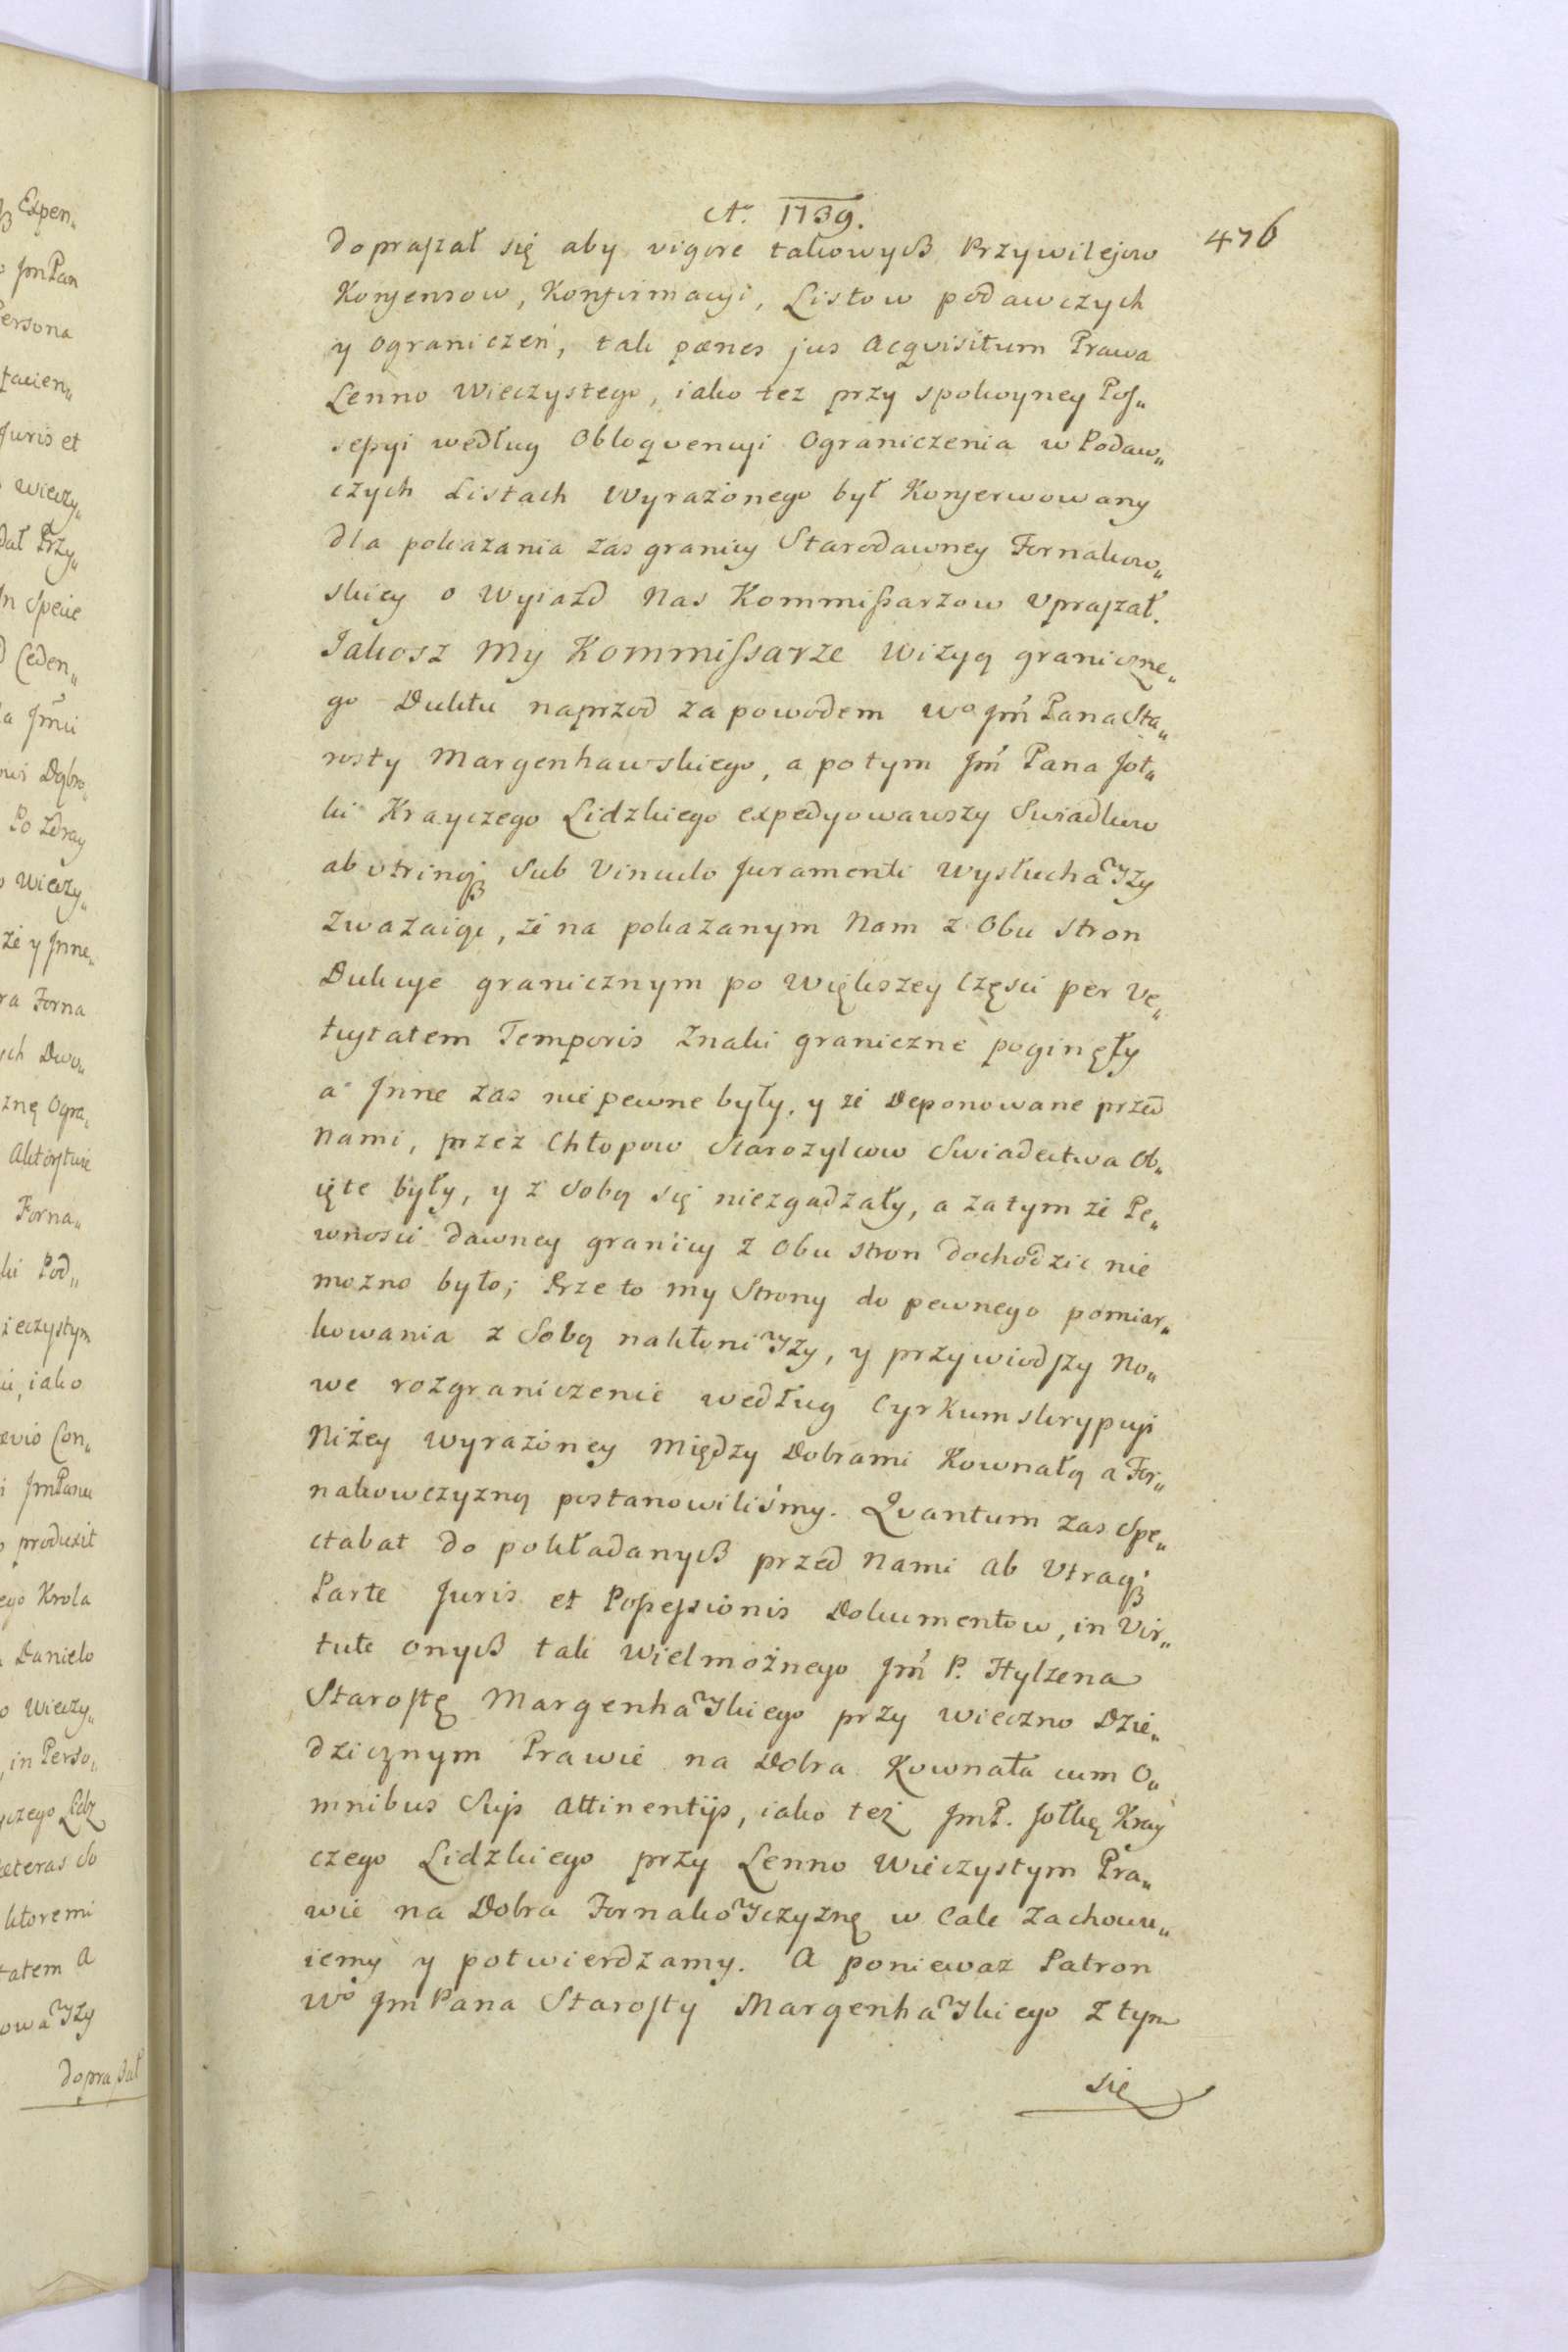 Expen„
JmPan
Persona
Juris et
wieczy„
dał Przy„
Jn Specie
Ceden„
Po zdray
wieczy„
że y Jnne„
ra Forna
ych Dwo„
znę Ogra„
Forna„
ki Pod„
ieczystym
iako
evio Con„
i JmPanu
produxit
ego Krola
Danielo
o Wieczy„
in Perso„
yczego Lidz
cæteras So
ktoremi
tatem A
owaWszy
doprassał
Aº 1739.
476
doprassał się aby vigore takowych Przywilejow
Konsensow, Konfirmacyi, Listow podawczych
y Ograniczeń, tak pænes jus Acqvisitum Prawa
Lenno Wieczystego, iako tez przy spokoyney Pos„
sessyi według Obloqvencyi Ograniczenia w Podaw„
czych Listach Wyrażonego był Konserwowany
dla pokazania zas granicy Starodawney Fornakow„
skiey o Wyiazd Nas Kommissarzow Vpraszał.
Jakosz My Kommissarze Wizyą graniczne„
go Duktu naprzod za powodem Wº Jm Pana Sta„
rosty Margenhawskiego, a potym Jm Pana Joł„
ki Krayczego Lidzkiego expedyowawszy Swiadkow
ab vtrinqз Sub Vinculo Juramenti WysłuchaWszy
Zwazaiąc, że na pokazanym Nam z Obu Stron
Dukcye granicznym po Większey Częsci per Ve„
tustatem Temporis Znaki graniczne poginęły
a Jnne zas nie pewne były, y że Deponowane przed
Nami, przez Chłopow Starozylcow Swiadectwa Ob„
ięte były, y z Sobą się niezgadzały, a zatym że Pe„
wnosci dawney granicy z Obu Stron dochodzic nie
mozno było; Przeto my Strony do pewnego pomiar„
kowania z Sobą nakłoniWszy, y przywiodszy No„
we rozgraniczenie według Cyrkumskrypcyi
Niżey Wyrażoney Między Dobrami Kownałą a For„
nakowczyzną postanowiliśmy. Qvantum zas Spe„
ctabat do pokładanych przed Nami ab Vtraqз
Parte Juris et Possessionis Dokumentow, in Vir„
tute onych tak Wielmożnego Jm P. Hylzena
Starostę MargenhaWskiego przy wieczno Dzie„
dzicznym Prawie na Dobra Kownała cum O„
mnibus Suis Attinentijs, iako też JmP. Jołkę Kray
czego Lidzkiego przy Lenno Wieczystym Pra„
wie na Dobra FornakoWczyznę w Cale Zachowu„
iemy y potwierdzamy. A poniewaz Patron
Wº Jm Pana Starosty MargenhaWskiego Z tym
się